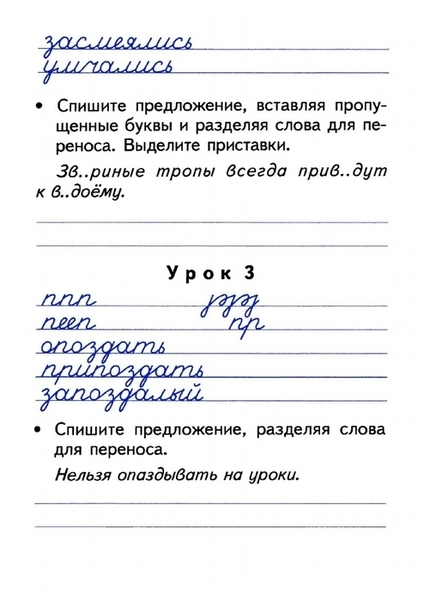 засмеялись
умчались
• Спишите предложение, вставляя пропу-
щенные буквы и разделяя слова для пе-
реноса. Выделите приставки.
Зв..риные тропы всегда прив..дут
к в..доёму.
Урок 3
ппп
пееп пр
опоздать
припоздать
запоздалый
• Спишите предложение, разделяя слова
для переноса.
Нельзя опаздывать на уроки.